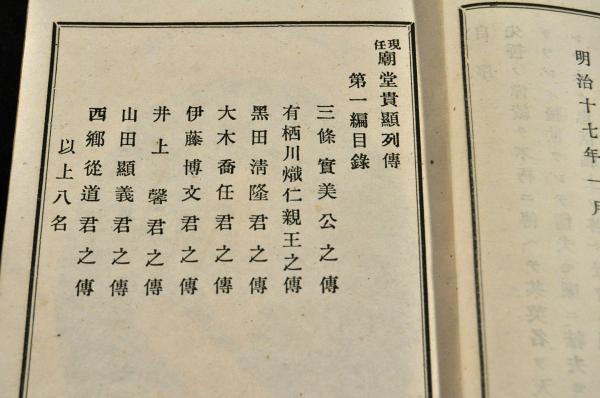 明治十七年一月
現任廟堂貴顯列傳
第一編目錄
三條實美公之傳
有栖川熾仁親王之傳
黑田淸隆君之傳
大木喬任君之傳
伊藤博文君之傳
井上馨君之傳
山田顯義君之傳
西鄕從道君之傳
以上八名